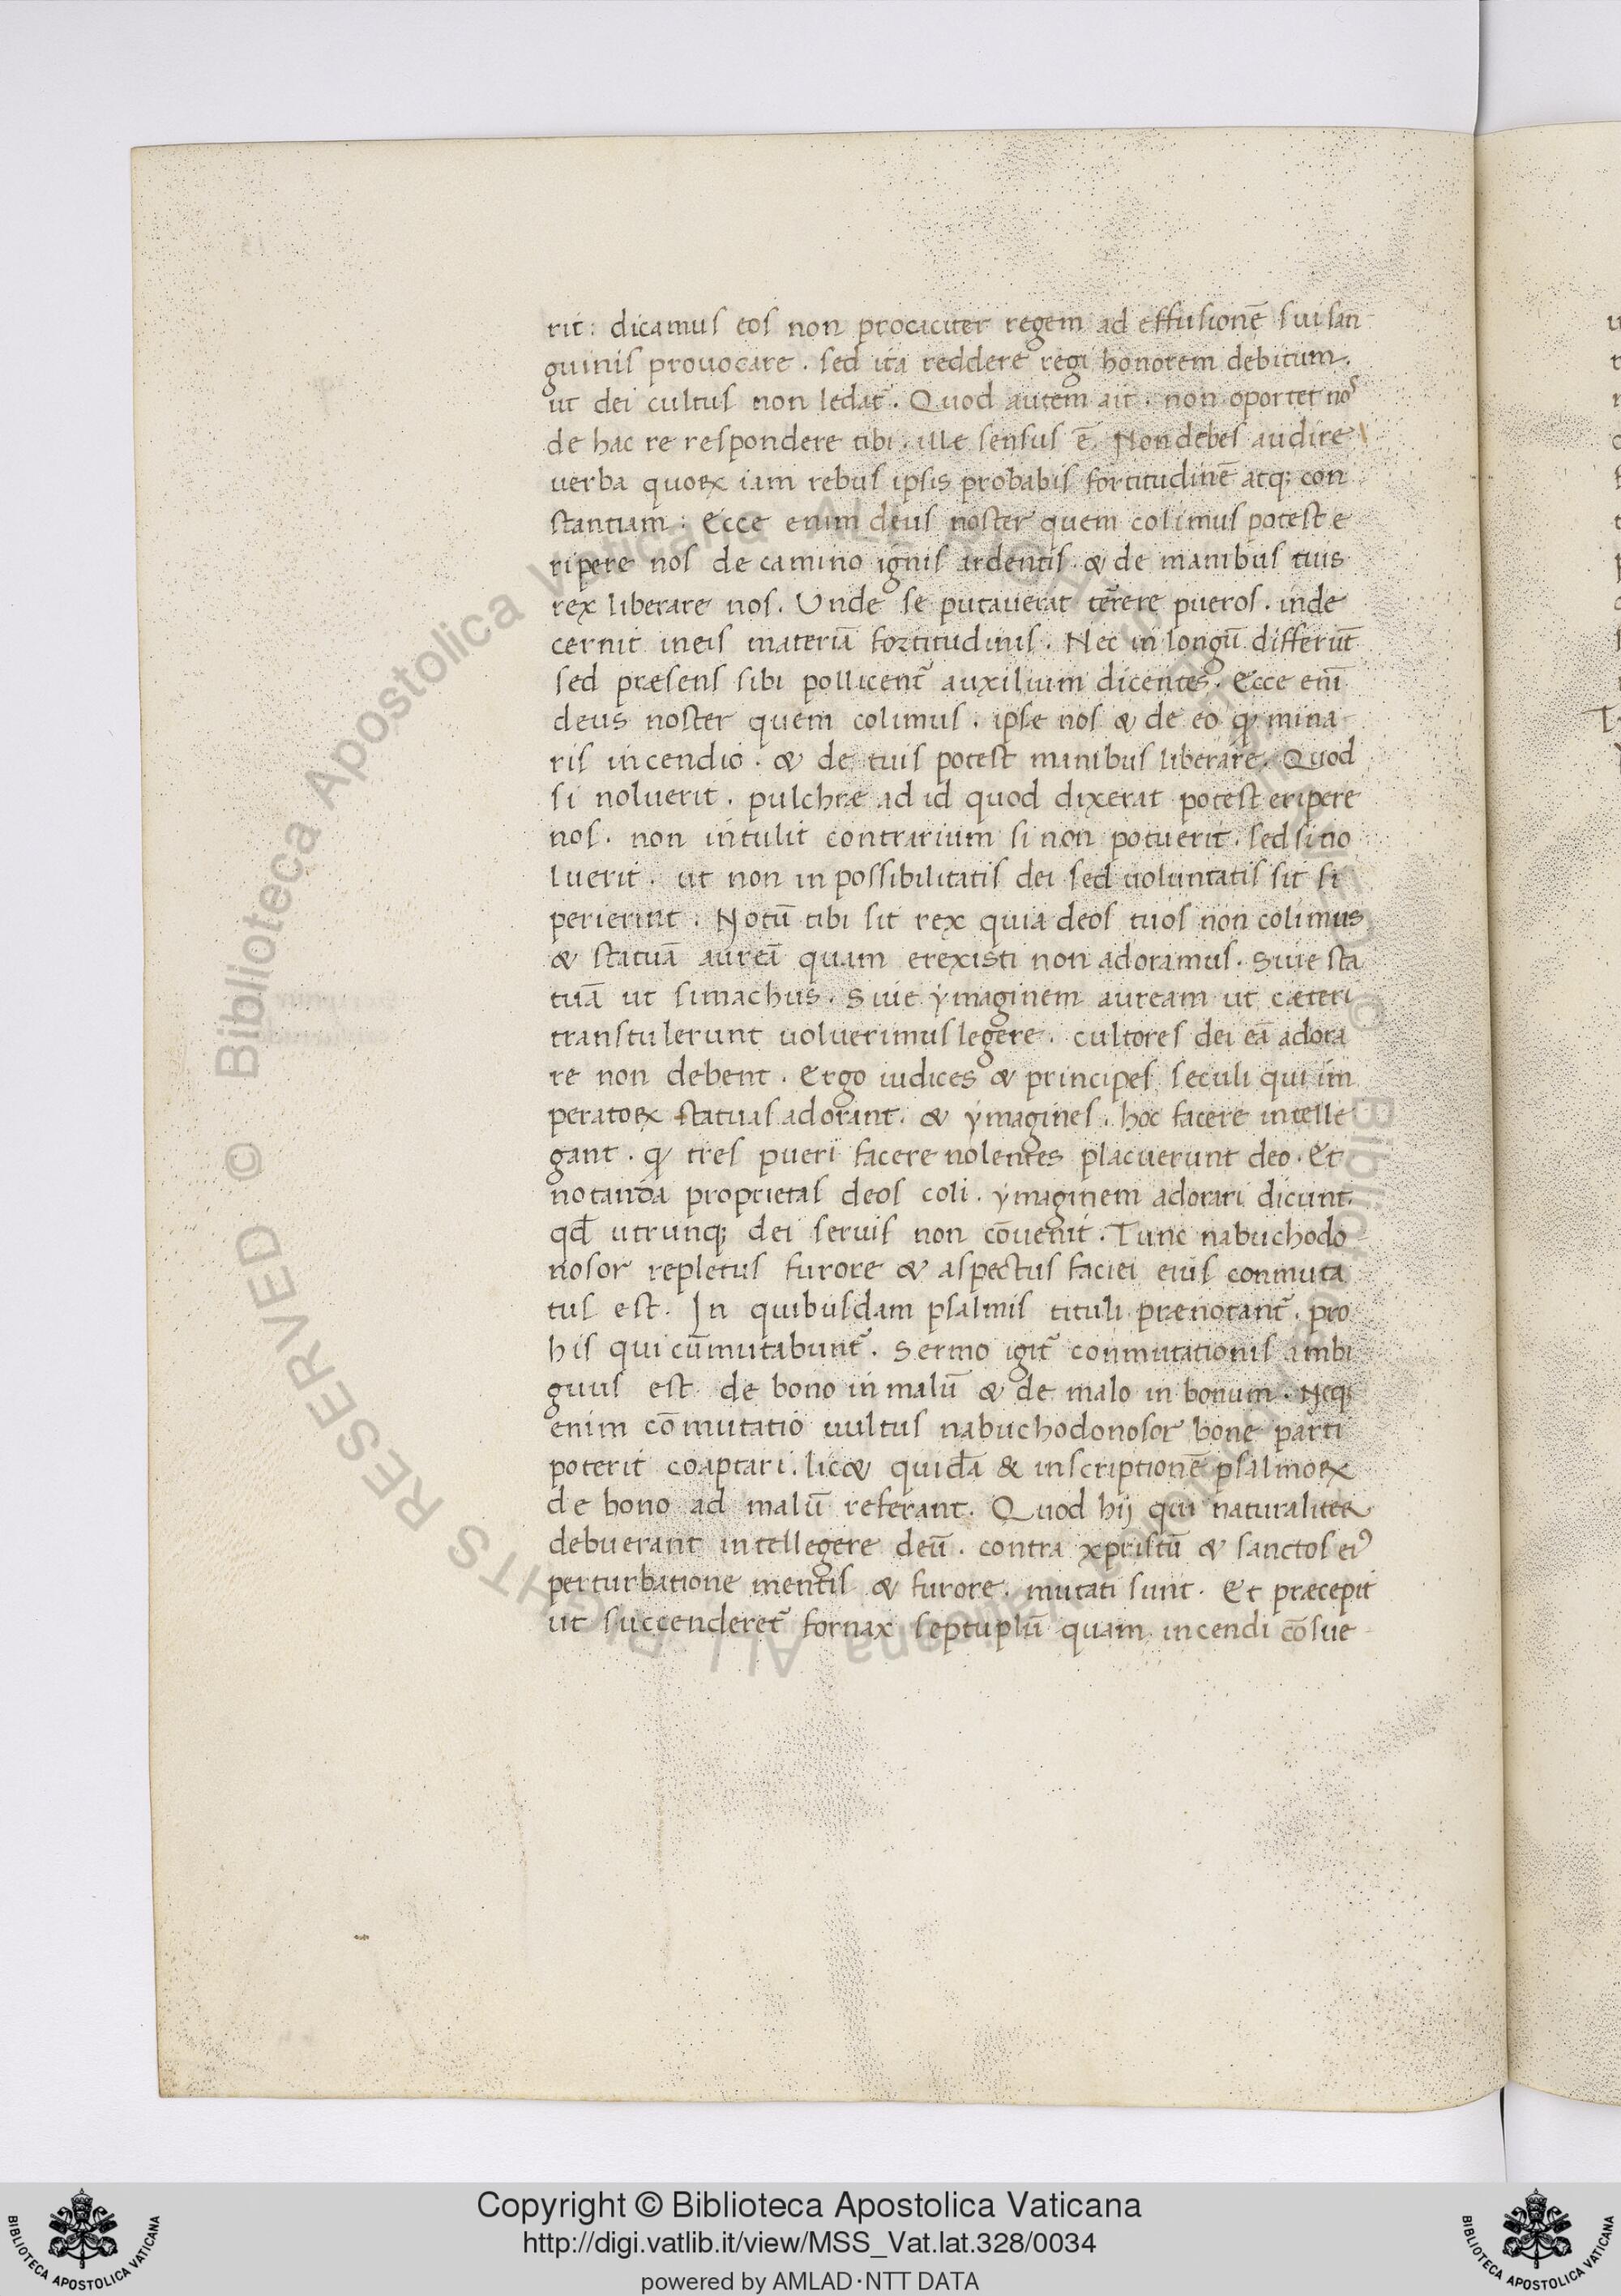 rit: dicamus eos non procaciter regem ad effusionē sui san
guinis prouocare. sed ita reddere regi honorem debitum.
ut dei cultus non ledat̄. Quod autem ait. non oportet noˢ
de hac re respondere tibi. ille sensus ē. Non debes audire
uerba quoꝝ iam rebus ipsis probabis fortitudinē atq; con
stantiam: Ecce enim deus noster quem colimus potest e
ripere nos de camino ignis ardentis. & de manibus tuis
rex liberare nos. Unde se putauerat tērere pueros. inde
cernit in eis materiā fortitudinis. Nec in longū differūt
sed præsens sibi pollicent̄ auxilium dicentes. Ecce eni̅
deus noster quem colimus. ipse nos & de eo qͥ mina
ris incendio. & de tuis potest manibus liberare. Quod
si noluerit. pulchre ad id quod dixerat potest eripere
nos. non intulit contrarium si non potuerit. sed si no
luerit. ut non inpossibilitatis dei sed uoluntatis sit si
perierint. Notū tibi sit rex quia deos tuos non colimus
& statuā aureā quam erexisti non adoramus. Siue sta
tuā ut simachus. Siue ymaginem auream ut cæteri
transtulerunt uoluerimus legere. cultores dei eā adora
re non debent. Ergo iudices & principes seculi qui im
peratoꝝ statuas adorant. & ymagines. hoc facere intelle
gant. qͥ tres pueri facere nolentes placuerunt deo. Et
notanda proprietas deos coli. ymaginem adorari dicunt.
qđ utrunq; dei seruis non cōuenit. Tunc nabuchodo
nosor repletus furore & aspectus faciei eius conmuta
tus est. In quibusdam psalmis tituli prænotant̄. pro
his qui cūmutabunt̄. Sermo igit̄ conmutationis ambi
guus est de bono in malū & de malo in bonum. Neq;
enim cōmutatio uultus nabuchodonosor bone parti
poterit coaptari. lic& quidā & inscriptionē psalmoꝝ
de bono ad malū referant. Quod hij qui naturaliter
debuerant intellegere deū. contra xpristū & sanctos ei᾿
perturbatione mentis & furore. mutati sunt. Et præcepit
ut succenderet̄ fornax septuplū quam incendi cōsue
Copyright © Biblioteca Apostolica Vaticana
http://digi.vatlib.it/view/MSS_Vat.lat.328/0034
powered by AMLAD·NTT DATA
BIBLIOTECA APOSTOLICA VATICANA
BIBLIOTECA APOSTOLICA VATICANA